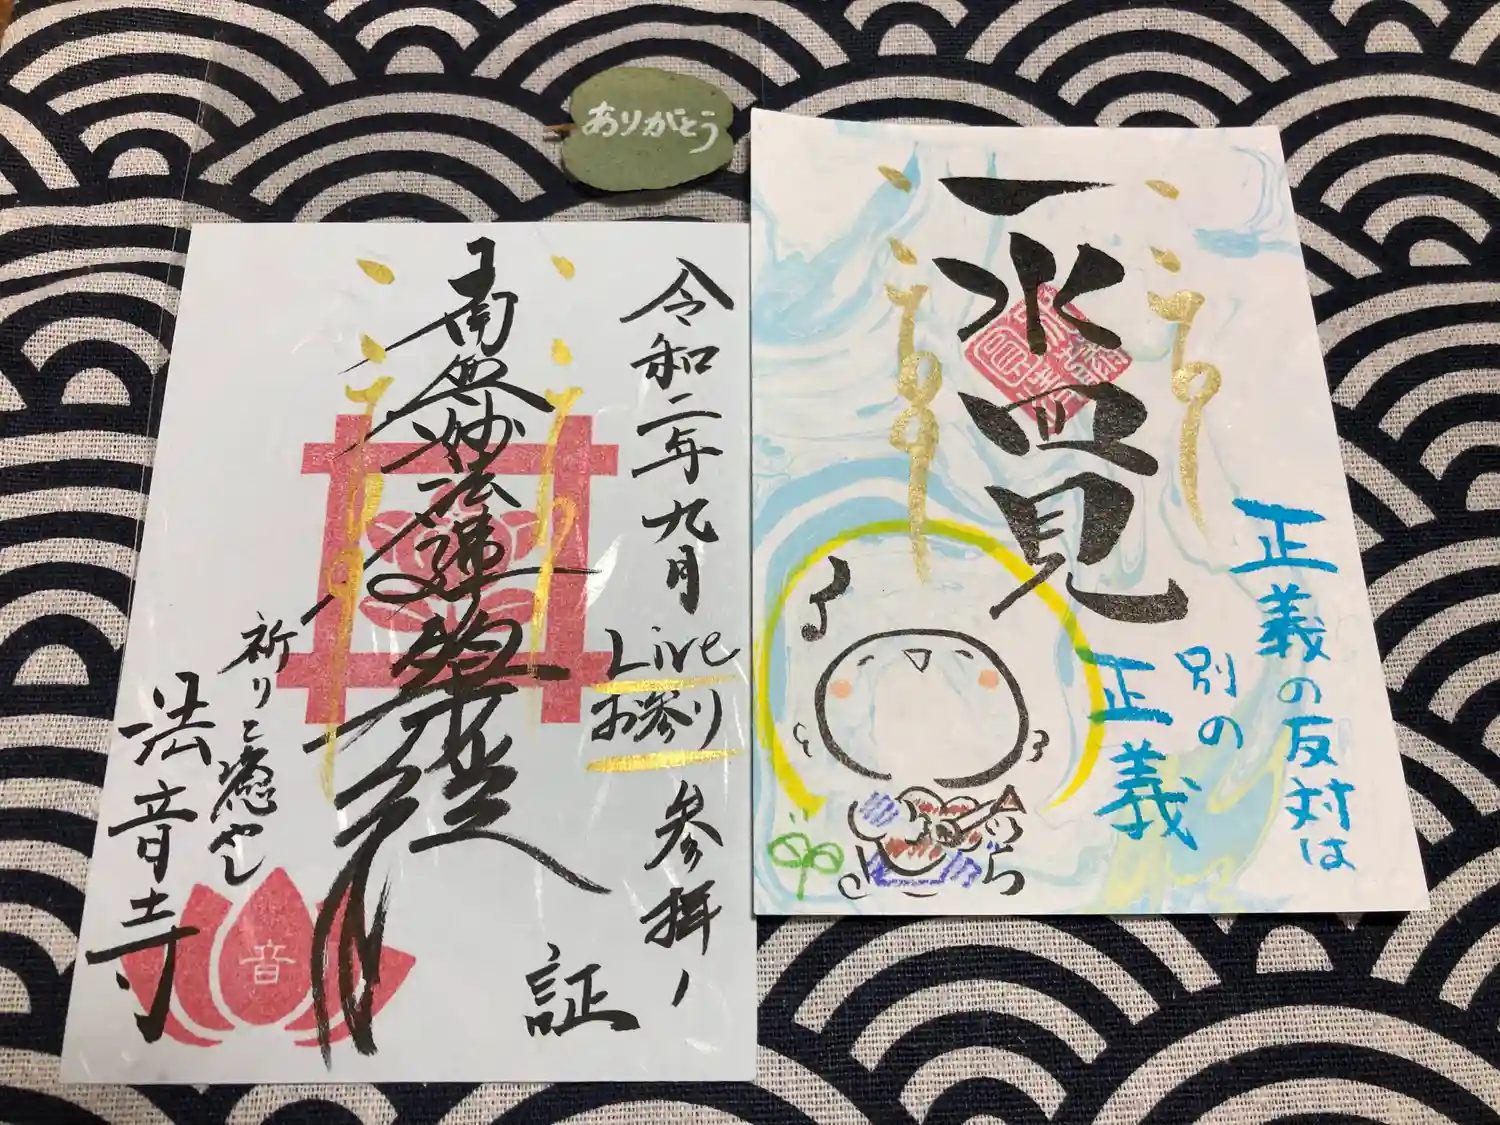 ありがとう
一水四見
正義の反対は
別の
正義
令和二年九月
Live
お参り
参拝ノ
証
南無妙法蓮華経
祈りと癒やし
法音寺
音